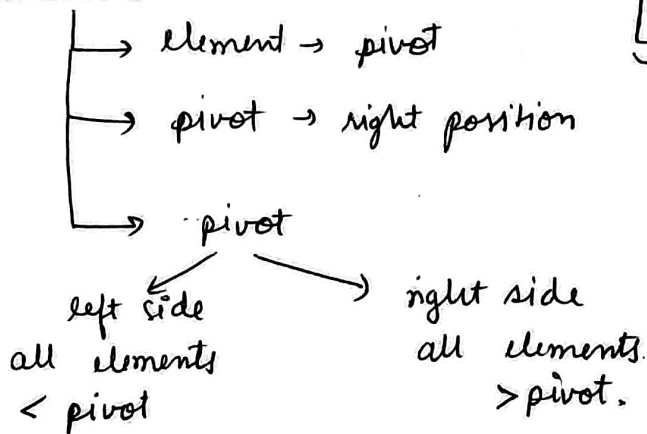 element → pivot
pivot → right position
pivot
left side
all elements
< pivot
right side
all elements.
> pivot.